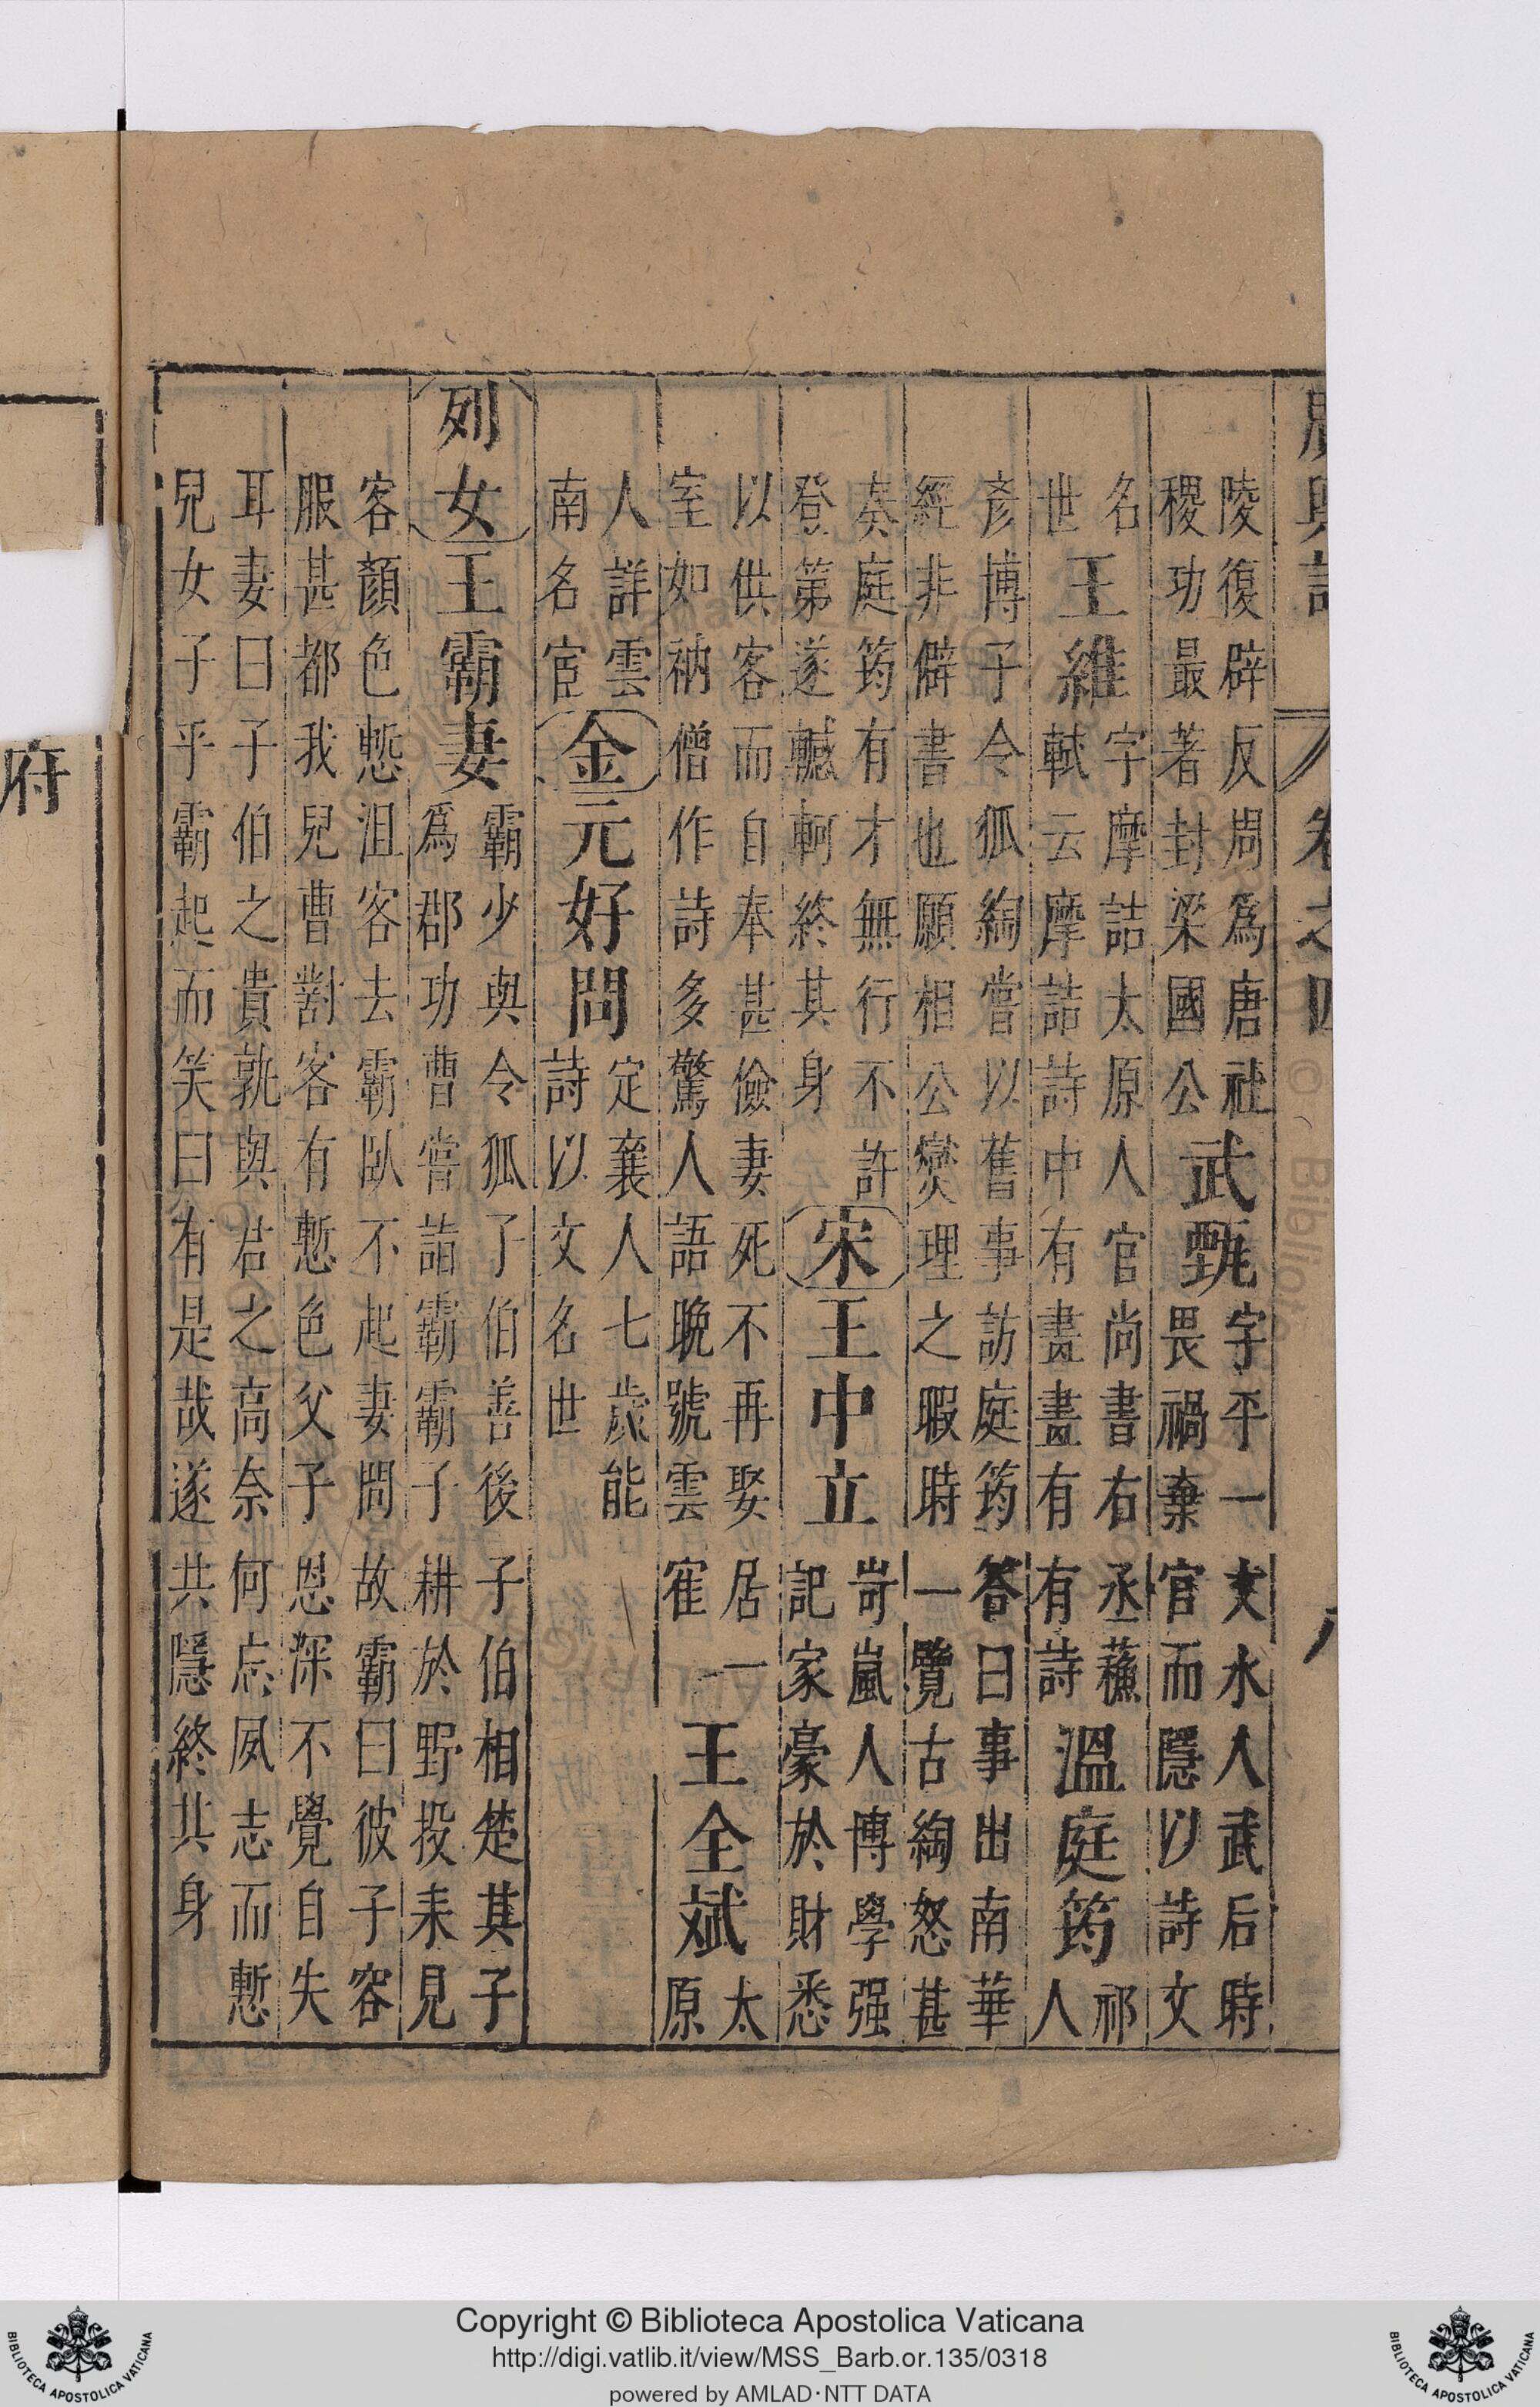 廣輿記 卷之四 八
陵復辟反周爲唐社
稷功最著封梁國公
武甄
字平一文水人武后時
畏禍棄官而隱以詩文
名
世
王維
字摩詰太原人官尚書右丞蘓
軾云摩詰詩中有畫畫有有詩
溫庭筠
祁
人
彥博子令狐綯嘗以舊事訪庭筠答曰事出南華
經非僻書也願相公爕理之暇時一覽古綯怒甚
奏庭筠有才無行不許
登第遂轗軻終其身
宋
王中立
岢嵐人博學强
記家豪於財悉
以供客而自奉甚儉妻死不再娶居一
室如衲僧作詩多驚人語晚號雲寉
王全斌
太
原
人詳雲
南名宦
金
元好問
定襄人七歲能
詩以文名世
列女
王霸妻
霸少與令狐子伯善後子伯相楚其子
爲郡功曹嘗詣霸霸子耕於野投耒見
客顏色慙沮客去霸臥不起妻問故霸曰彼子容
服甚都我兒曹對客有慙色父子恩深不覺自失
耳妻曰子伯之貴孰與君之高奈何忘夙志而慙
兒女子乎霸起而笑曰有是哉遂共隱終其身
府
Copyright © Biblioteca Apostolica Vaticana
http://digi.vatlib.it/view/MSS_Barb.or.135/0318
powered by AMLAD·NTT DATA
BIBLIOTECA APOSTOLICA VATICANA
BIBLIOTECA APOSTOLICA VATICANA